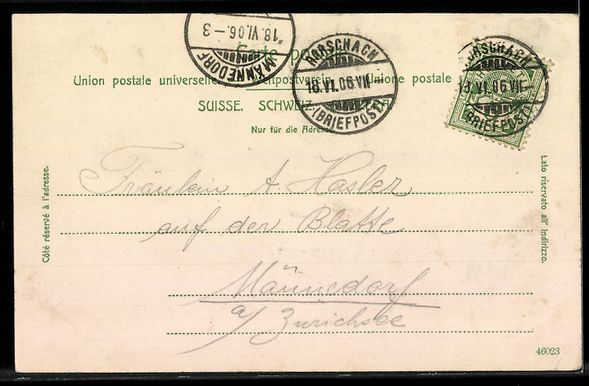 18.VI.06.-3
MÄNNEDORF
Carte postale
RORSCHACH
18.VI.06.VII
(BRIEFPOST)
RORSCHACH
18.VI.06.VII
(BRIEFPOST)
Union postale universelle. Weltpostverein. Unione postale
SUISSE. SCHWEIZ.
Nur für die Adresse.
Côté réservé à l'adresse.
Lato riservato all' indirizzo.
Fräulein A. Hasler
auf der Blatte
Männedorf
a/ Zürichsee
46023